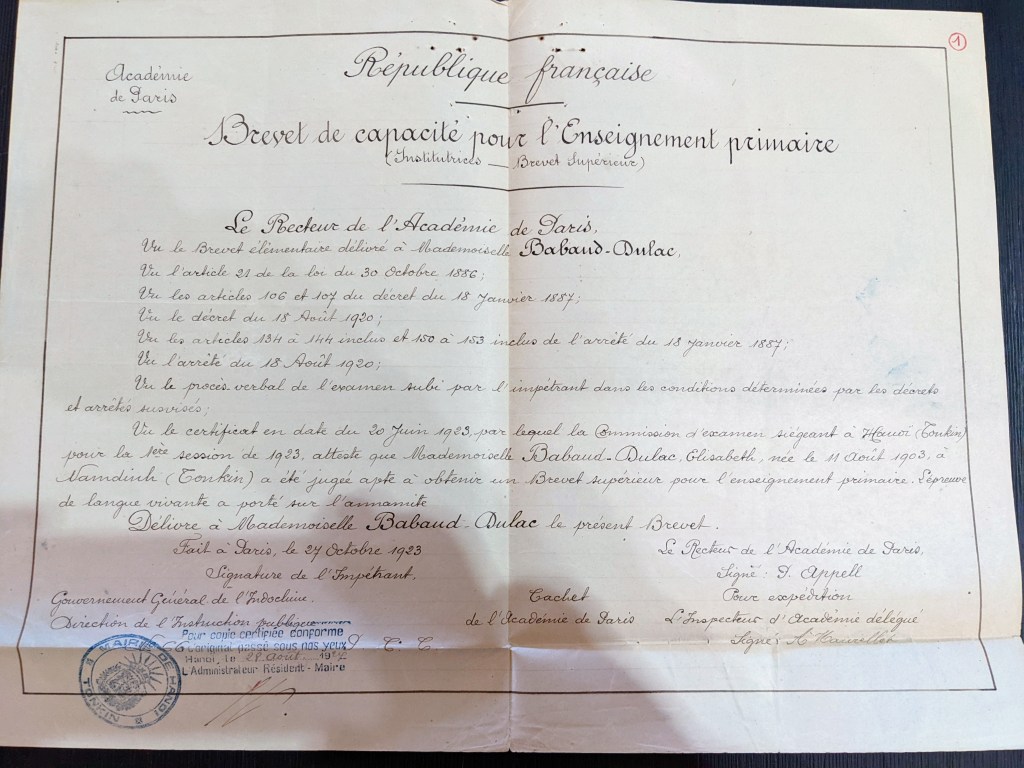 1
Académie
de Paris
République française
Brevet de capacité pour l'Enseignement primaire
(Institutrices — Brevet Supérieur)
Le Recteur de l'Académie de Paris,
Vu le Brevet élémentaire délivré à Mademoiselle Babaud-Dulac,
Vu l'article 21 de la loi du 30 Octobre 1886;
Vu les articles 106 et 107 du décret du 18 Janvier 1887;
Vu le décret du 18 Août 1920;
Vu les articles 134 à 144 inclus et 150 à 153 inclus de l'arrêté du 18 janvier 1887;
Vu l'arrêté du 18 Août 1920;
Vu le procès-verbal de l'examen subi par l'impétrant dans les conditions déterminées par les décrets
et arrêtés susvisés;
Vu le certificat en date du 20 Juin 1923, par lequel la Commission d'examen siégeant à Hanoï (Tonkin)
pour la 1ère session de 1923, atteste que Mademoiselle Babaud-Dulac, Elisabeth, née le 11 Août 1903, à
Namdinh (Tonkin) a été jugée apte à obtenir un Brevet supérieur pour l'enseignement primaire. L'épreuve
de langue vivante a porté sur l'annamite
Délivre à Mademoiselle Babaud-Dulac le présent Brevet.
Fait à Paris, le 27 Octobre 1923
Le Recteur de l'Académie de Paris,
Signature de l'Impétrant,
Signé: P. Appell
Gouvernement Général de l'Indochine.
Cachet
Pour expédition
Direction de l'Instruction publique
de l'Académie de Paris
L'Inspecteur d'Académie délégué
Signé
Pour copie certifiée conforme
à l'original passé sous nos yeux
Hanoi, le 28 août
L'Administrateur Résident - Maire
MAIRIE DE HANOI
TONKIN